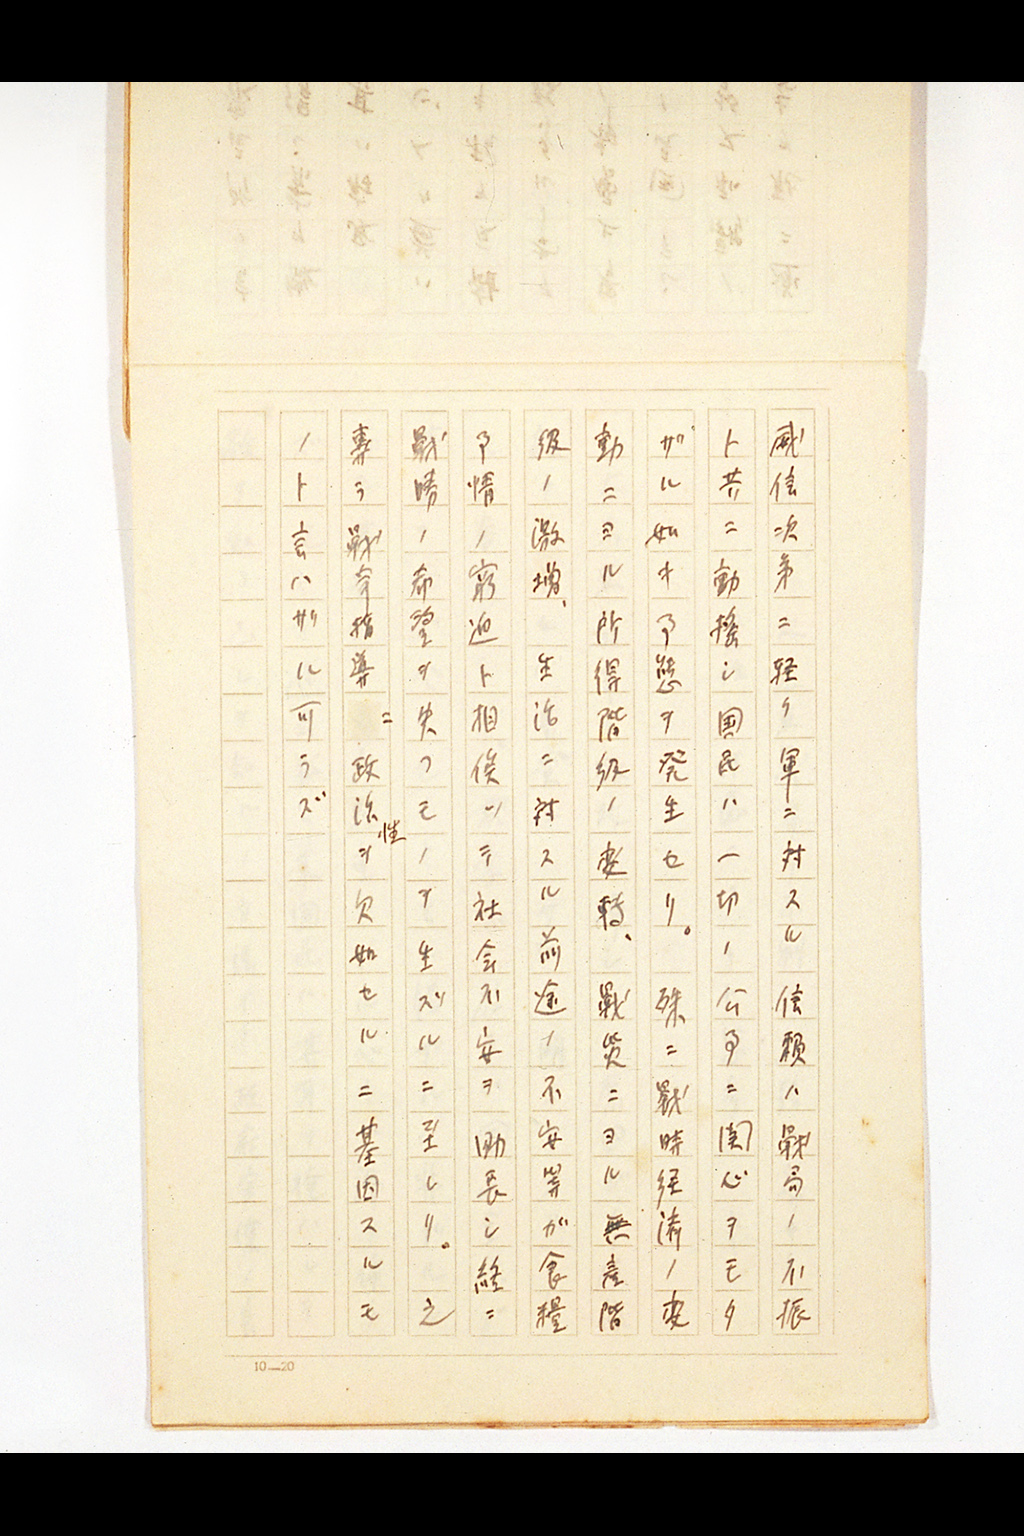 威信次第ニ軽ク軍ニ対スル信頼ハ戦局ノ不振
ト共ニ動揺シ国民ハ一切ノ公事ニ関心ヲモタ
ザル如キ事態ヲ発生セリ。殊ニ戦時経済ノ変
動ニヨル所得階級ノ変轉、戦災ニヨル無産階
級ノ激増、生活ニ対スル前途ノ不安等ガ食糧
事情ノ窮迫ト相俟ツテ社会不安ヲ助長シ終ニ
戦勝ノ希望ヲ失フモノヲ生ズルニ至レリ。之
専ラ戦争指導ニ政治性ヲ欠如セルニ基因スルモ
ノト言ハザル可ラズ
10—20